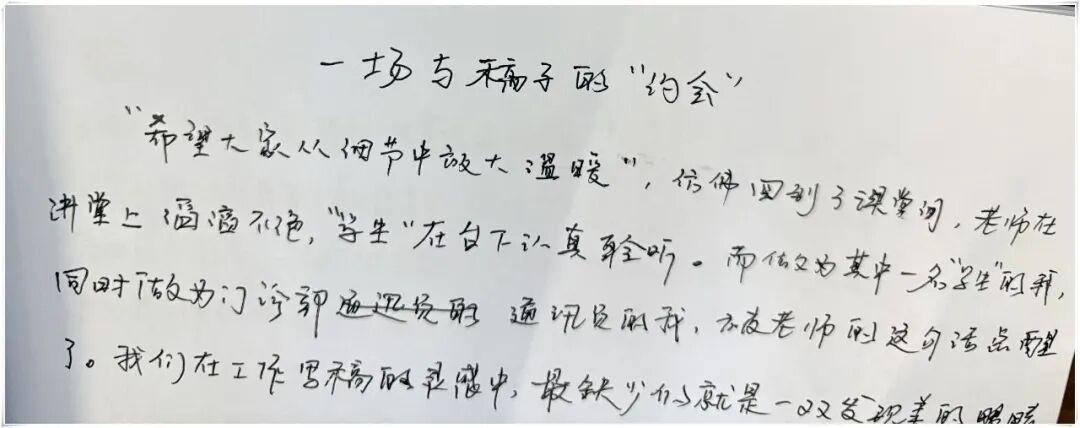 一场与稿子的“约会”
“希望大家从细节中放大温暖”，仿佛回到了课堂间，老师在
讲堂上滔滔不绝，“学生”在台下认真聆听。而做为其中一名“学生”的我，
同时做为门诊部通讯员的 通讯员的我，亦被老师的这句话点醒
了。我们在工作写稿的灵感中，最缺少的就是一双发现美的眼睛